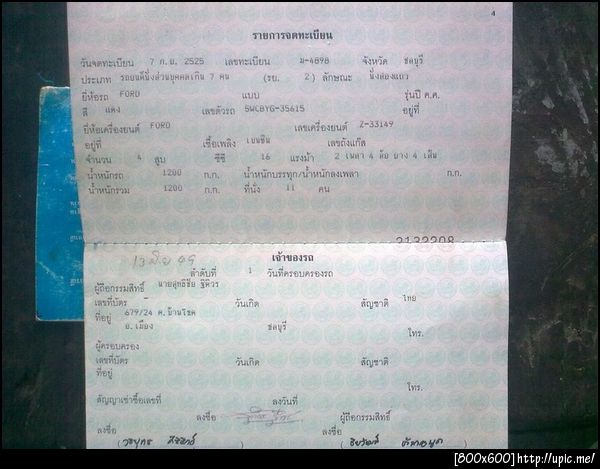 4
รายการจดทะเบียน
วันจดทะเบียน 7 ก.ย. 2525 เลขทะเบียน ม-4898 จังหวัด ชลบุรี
ประเภท รถยนต์นั่งส่วนบุคคลเกิน 7 คน (รย. 2) ลักษณะ นั่งสองแถว
ยี่ห้อรถ FORD แบบ รุ่นปี ค.ศ.
สี แดง เลขตัวรถ SWCBYG-35615 อยู่ที่
ยี่ห้อเครื่องยนต์ FORD เลขเครื่องยนต์ Z-33149
อยู่ที่ เชื้อเพลิง เบนซิน เลขถังแก๊ส
จำนวน 4 สูบ ซีซี 16 แรงม้า 2 เพลา 4 ล้อ ยาง 4 เส้น
น้ำหนักรถ 1200 ก.ก. น้ำหนักบรรทุก/น้ำหนักลงเพลา ก.ก.
น้ำหนักรวม 1200 ก.ก. ที่นั่ง 11 คน
2132208
เจ้าของรถ
ลำดับที่ 1 วันที่ครอบครองรถ
ผู้ถือกรรมสิทธิ์
เลขที่บัตร - วันเกิด สัญชาติ ไทย
ที่อยู่ 679/24 ถ.บ้านโขด
อ.เมือง ชลบุรี โทร.
ผู้ครอบครอง
เลขที่บัตร วันเกิด สัญชาติ
ที่อยู่
โทร.
สัญญาเช่าซื้อเลขที่ ลงวันที่
ลงชื่อ ผู้ถือกรรมสิทธิ์
ลงชื่อ ลงชื่อ
[800x600]http://upic.me/